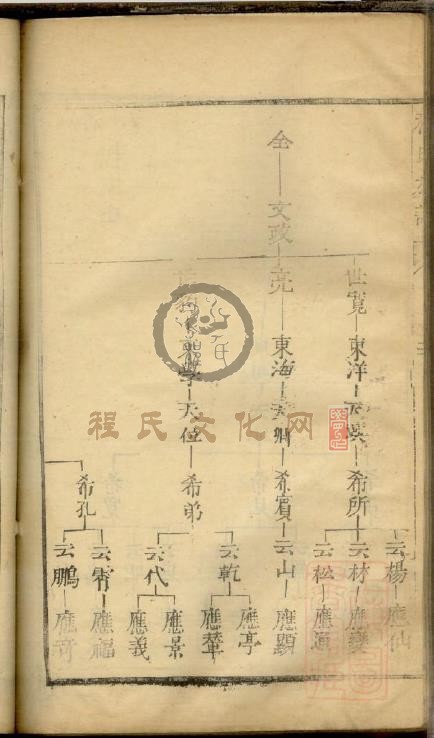 世寛 東洋 希所
云楊 應仙
云材 應變
云松 應道
全 文政 亮 東海 希賓 云山 應顕
東學 天位 希弟
云乾 應亭
應輦
云代 應景
應義
希孔
云霄 應福
云鵬 應奇
程氏文化网